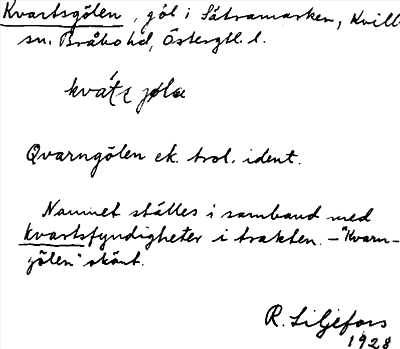 Kvartsgölen, göl i Sätramarken, Kvill
sn. Bråbo hd, Östergtl. l.
Qvarngölen ek. trol. ident.
Namnet ställes i samband med
kvartsfyndigheter i trakten. – "Kvarn-
gölen" okänt.
R. Liljefors
1928